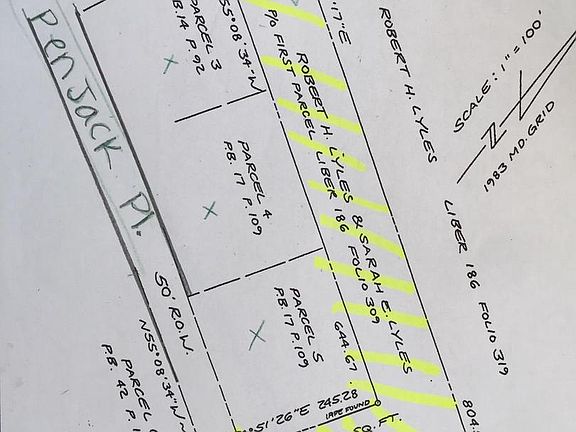 Penjack Pl.
50' R.O.W.
N55°08'34"W
PARCEL
P.B. 42 P.1
PARCEL 3
P.B.14 P.92
S55°08'34"W
PARCEL 4
P.B. 17 P.109
PARCEL 5
P.B.17 P.109
P/O FIRST PARCEL LIBER 186 FOLIO 309
ROBERT H. LYLES & SARAH E. LYLES
644.67
°51'26"E 245.28
FOUND
SQ. FT.
'17"E
804.
ROBERT H. LYLES
LIBER 186 FOLIO 319
SCALE: 1"=100'
N
1983 MD. GRID